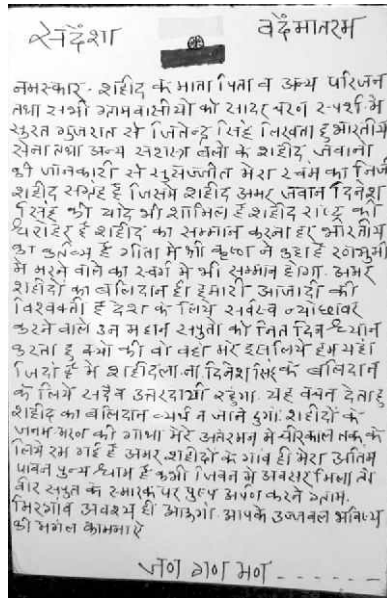 सदेंशा वदेंमातरम
नमस्कार - शहीद के माता पिता व अन्य परिजन
तथा सभी ग्रामवासीयो को सादर चरन स्पर्श में
सुरत गुजरात से जितेन्द्र सिंह लिखता हु भारतीय
सेना तथा अन्य सशस्त्र बलो के शहीद जवानो
की जानकारी से सुसज्जीत मेरा स्वंम का निजी
शहीद संग्रह है जिसमे शहीद अमर जवान दिनेश
सिंह की यादे भी शामिल है शहीद राष्ट्र की
धरोहर है शहीद का सम्मान करना हर भारतीय
का कर्तव्य है गीता मे श्री कृष्ण ने कहा है रणभुमी
मे मरने वाले का स्वंग मे भी सम्मान होगा. अमर
शहीदो का बलिदान ही हमारी आजादी की
है देश के लिये सर्वस्व न्योछावर
करने वाले उन महान सपुतो को नित दिन ध्यान
करता हु क्यो की वो वहा मरे इसलिये हम यहा
जिंदा है मे शहीद ला.ना. दिनेश सिंह के बलिदान
के लिये सदैव उत्तरदायी रहुगा. यह वचन देता हु
शहीद का बलिदान व्यर्थ न जाने दुगा. शहीदो के
जनम मरन की गाथा मेरे अतंरमन मे चीरकाल तक के
लिये रम गई है अमर शहीदो के गाँव ही मेरा अतिम
पावन पुन्य धाम है कभी जिवन मे अवसर मिला तो
वीर सपुत के स्मारक पर पुष्प अर्पण करने ग्राम.
मिरगांव अवश्य ही आऊगा. आपके उज्जवल भविष्य
की मगंल कामनाऐ
जण गण मण - - - - - - -